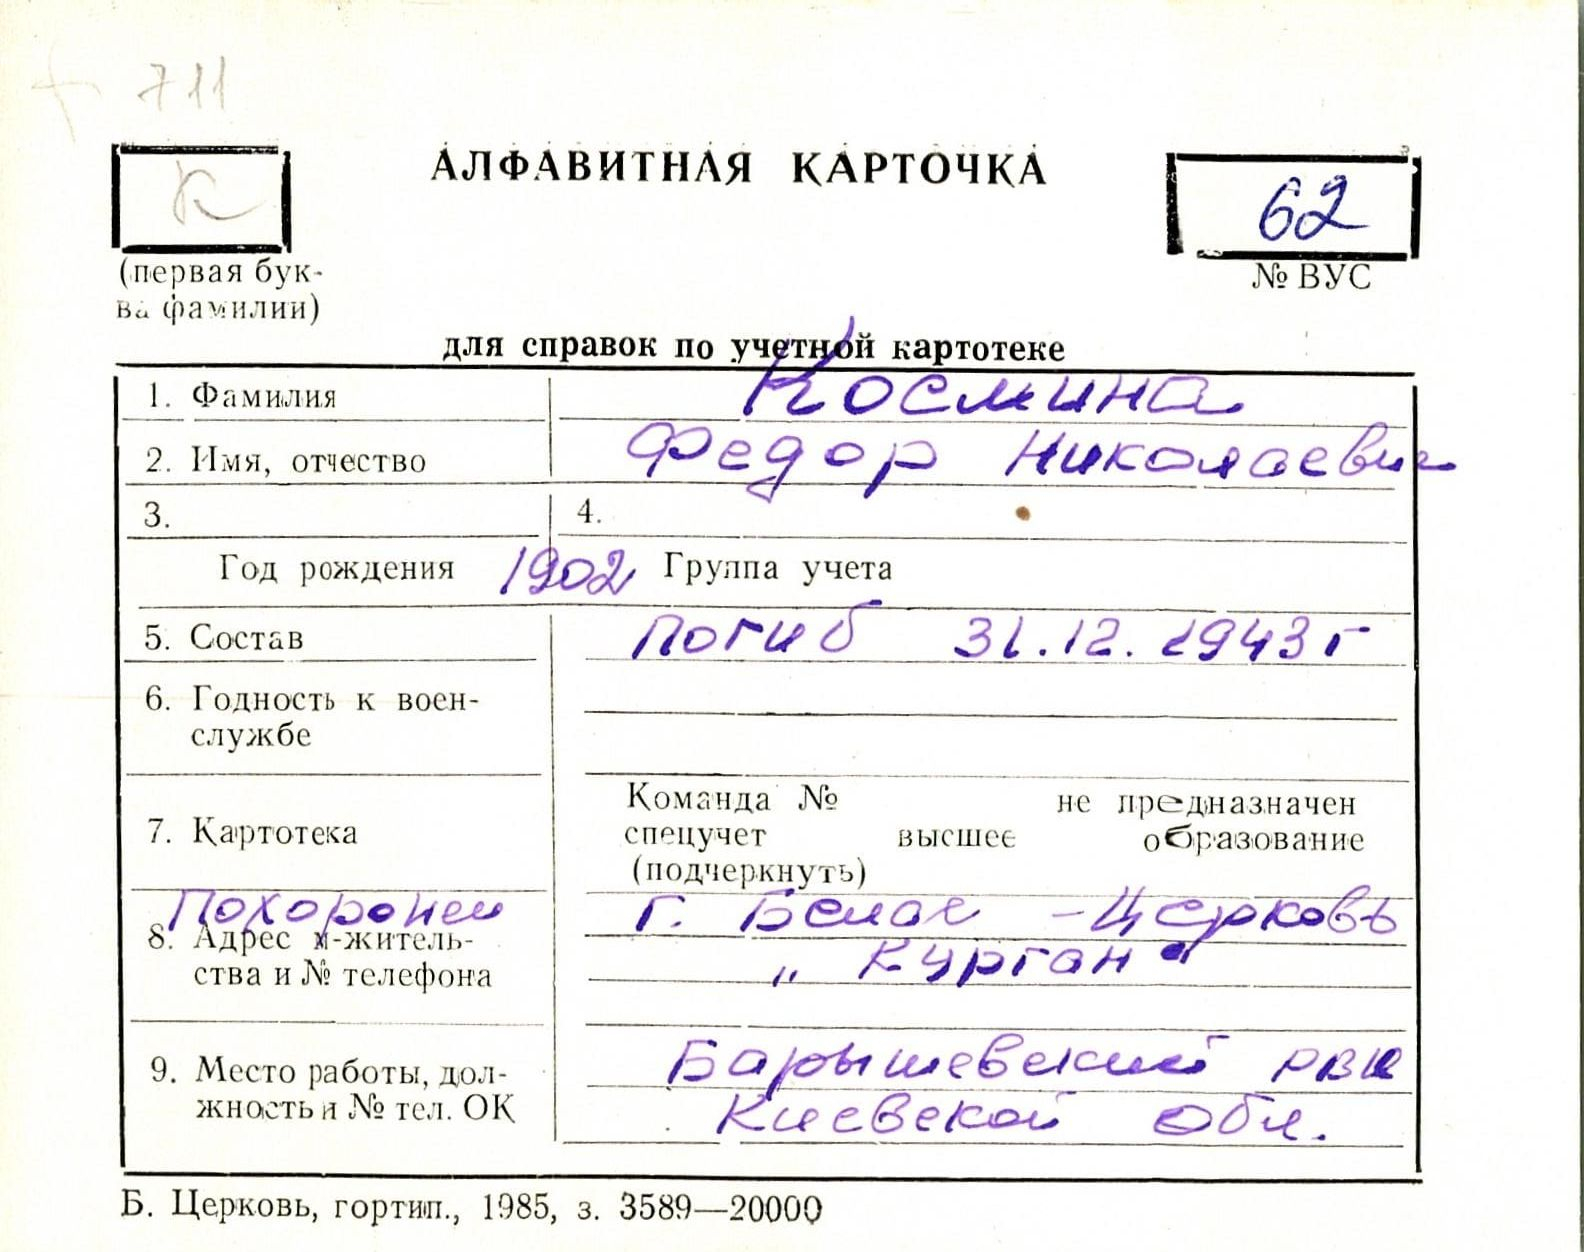 711
К
АЛФАВИТНАЯ КАРТОЧКА
62
(первая бук-
ва фамилии)
№ ВУС
для справок по учетной картотеке
1. Фамилия Космина
2. Имя, отчество Федор Николаевич
3. 4.
Год рождения 1902 Группа учета
5. Состав Погиб 31.12.1943 г
6. Годность к воен-
службе
7. Картотека
Команда № не предназначен
спецучет высшее образование
(подчеркнуть)
Похоронен г. Белая - Церковь
8. Адрес м-житель-
ства и № телефона
„Курган"
9. Место работы, дол-
жность и № тел. ОК
Барышевский РВК
Киевской обл.
Б. Церковь, гортип., 1985, з. 3589—20000